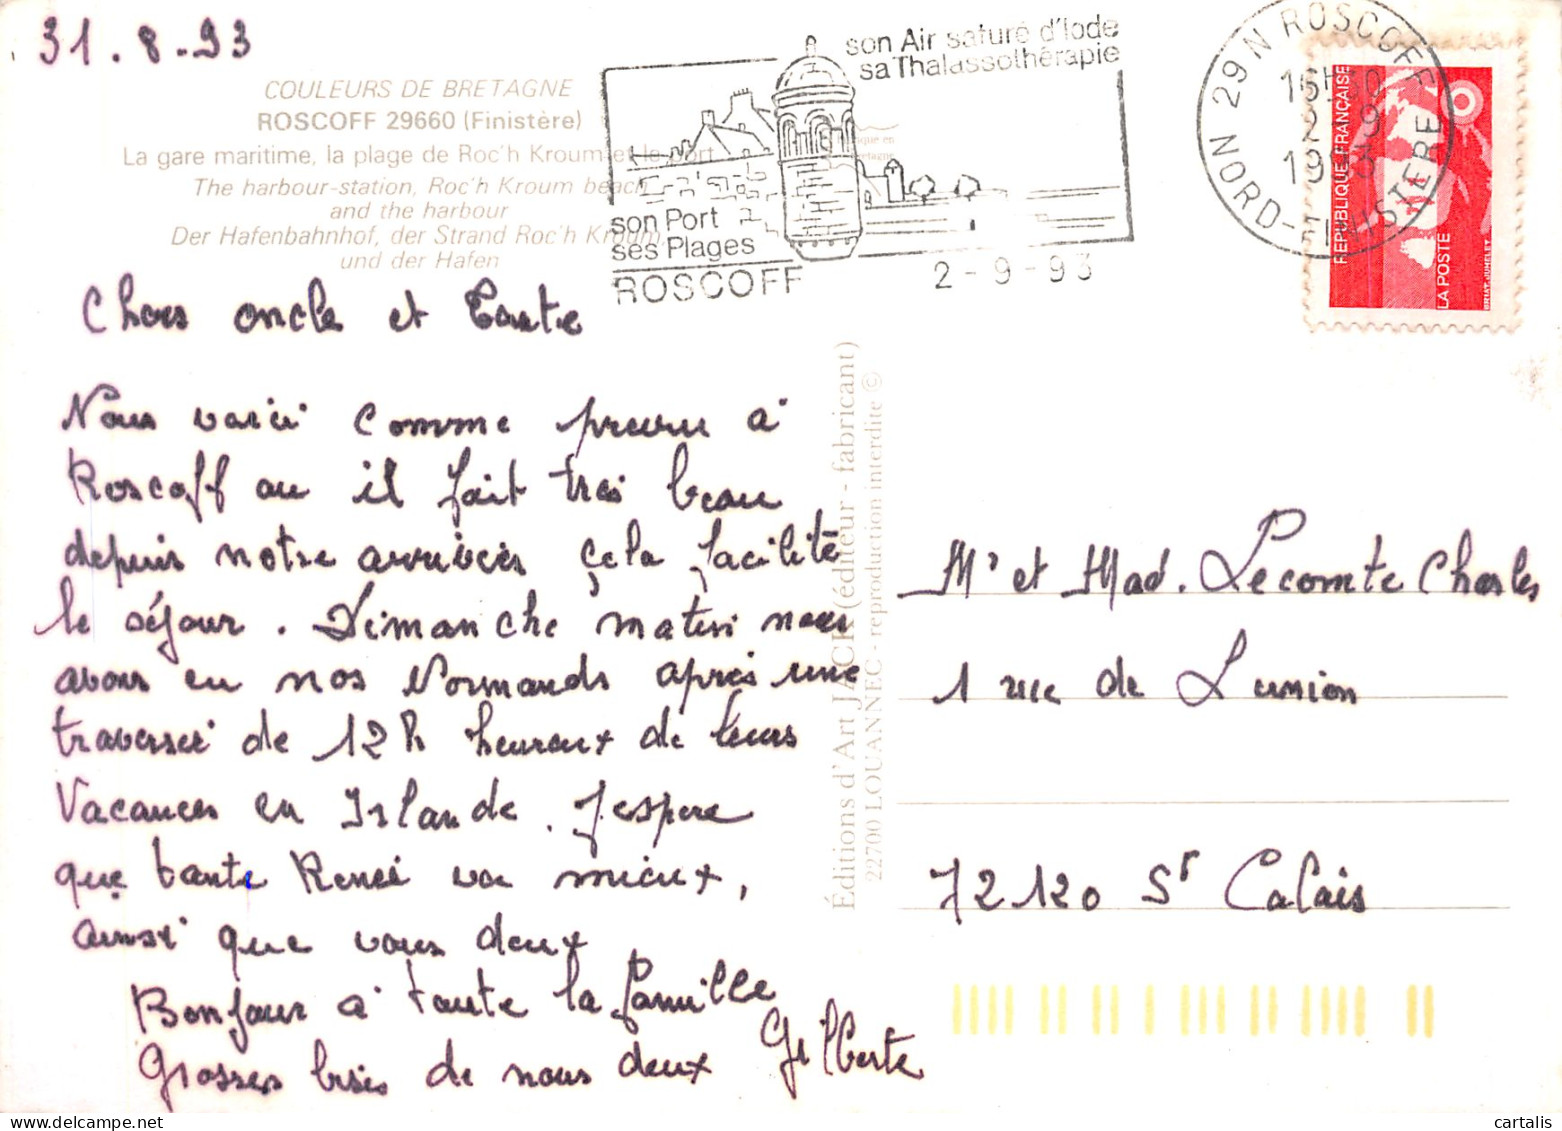 31.8-93
COULEURS DE BRETAGNE
ROSCOFF 29660 (Finistère)
La gare maritime, la plage de Roc'h Kroum et le port
The harbour-station, Roc'h Kroum beach
and the harbour
Der Hafenbahnhof, der Strand Roc'h Kroum,
und der Hafen
son Air saturé d'Iode
sa Thalassothérapie
son Port
ses Plages
ROSCOFF
2-9-93
29 N ROSCOFF
16H30
2-9
1993
NORD-FINISTERE
REPUBLIQUE FRANÇAISE
LA POSTE
BRIAT. JUMELET
Chers oncle et Tante
Nous voici comme prevu à
Roscoff ou il fait très beau
depuis notre arrivées çela facilité
le séjour. Dimanche matin nous
avons eu nos Normands après une
traversei de 12h heureux de leurs
Vacances en Islande. J'espere
que tante Reneé va mieux,
ainsi que vous deux
Bonjour à toute la famille
Grosses bises de nous deux Gilberte
Éditions d'Art JACK (éditeur - fabricant)
22700 LOUANNEC - reproduction interdite ©
Mr et Mad. Lecomte Charles
1 rue de Lunion
72120 St Calais
cartalis